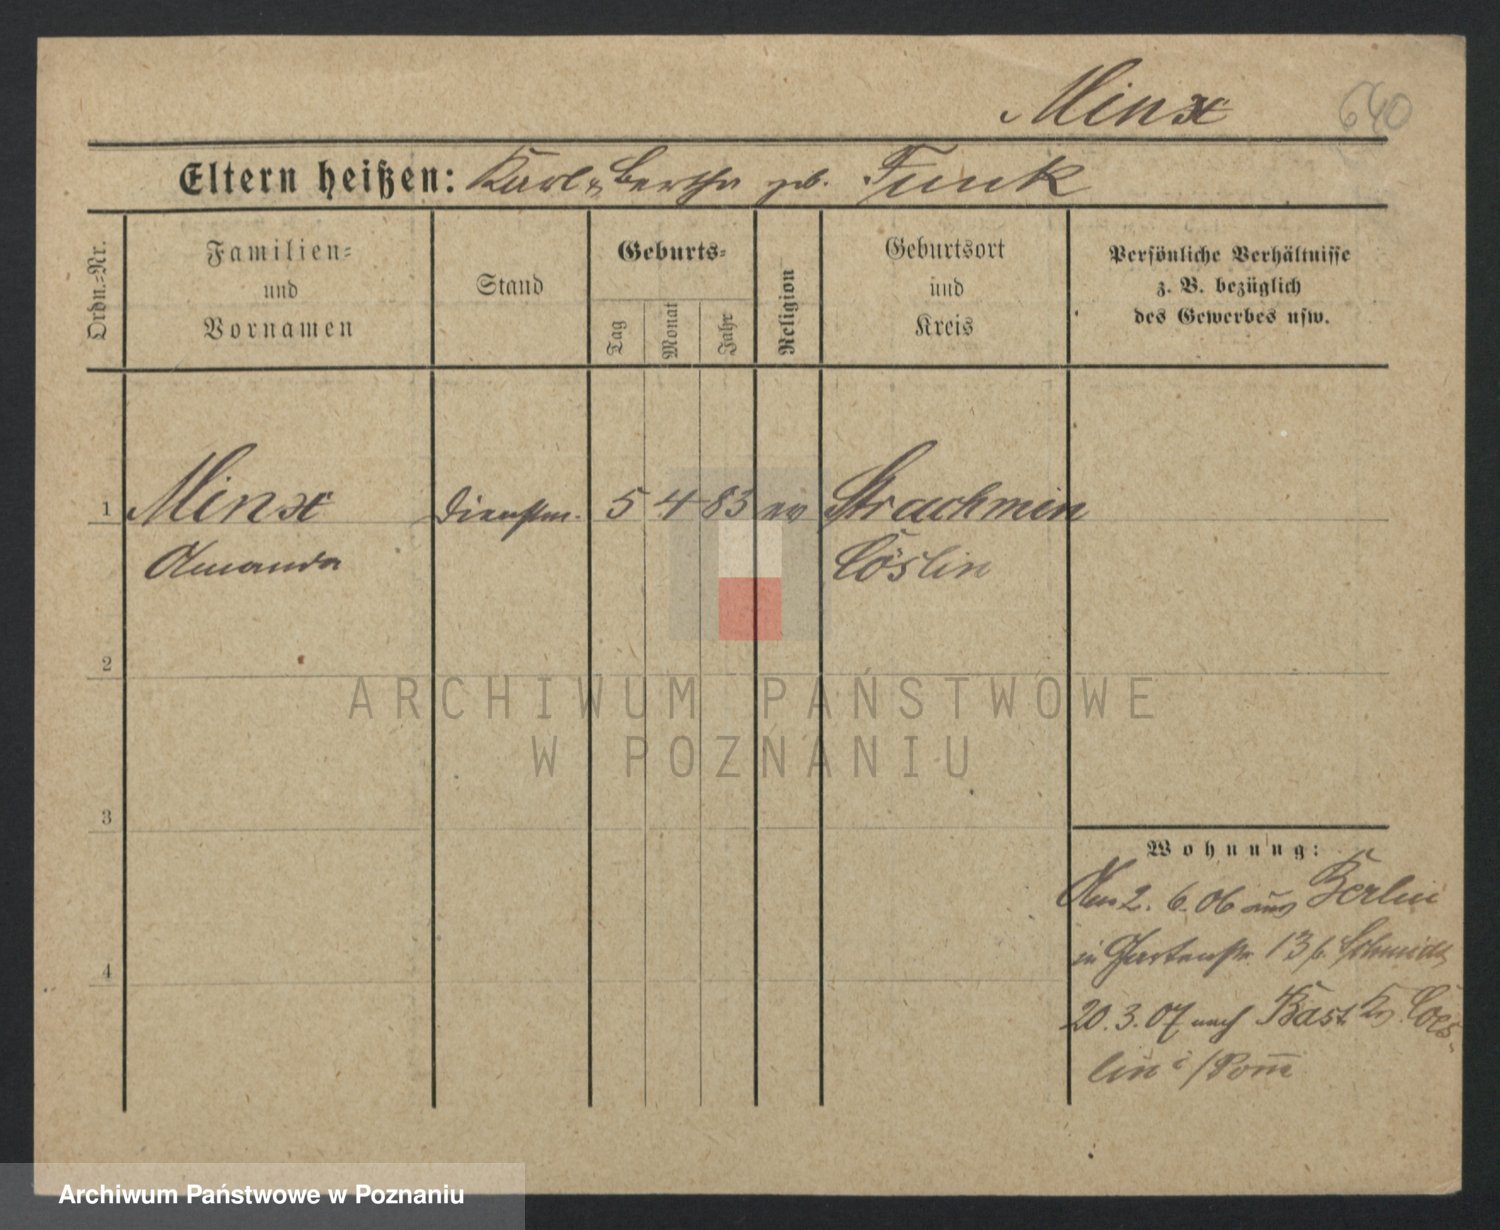 Minx
640
Eltern heißen: Karl u. Bertha geb. Funk
Ordn.-Nr.
Familien-
und
Vornamen
Stand
Geburts-
Tag
Monat
Jahr
Religion
Geburtsort
und
Kreis
Persönliche Verhältnisse
z. B. bezüglich
des Gewerbes usw.
1 Minx Dienstm. 5 4 83 ev Strachmin
Amanda Cöslin
2
3
4
ARCHIWUM PAŃSTWOWE
W POZNANIU
Wohnung:
Am 2. 6. 06 aus Berlin
in Gartenstr. 13 b. Schmidt
20. 3. 07 nach Bast Kr. Cös-
lin i/Pom
Archiwum Państwowe w Poznaniu